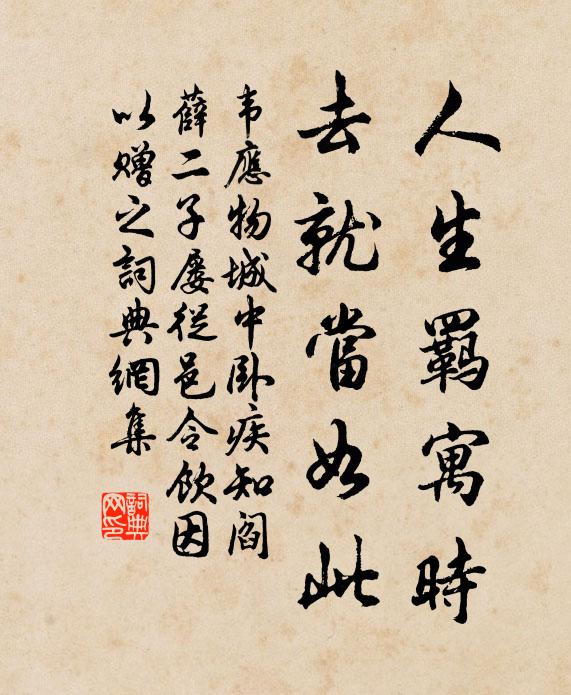 人生羈寓時
去就當如此
韦應物城中卧疾知閻
薛二子屡從邑令飲因
以贈之詞典網集
詞典网印